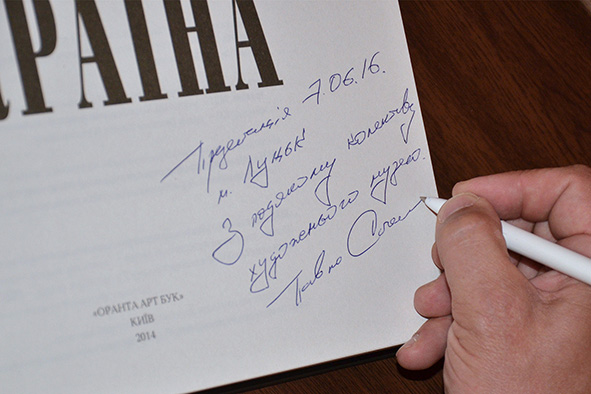 РАЇНА
Презентація 7.06.16.
м. Луцьк
З подякою колективу
художнього музею.
Павло
«ОРАНТА АРТ БУК»
КИЇВ
2014